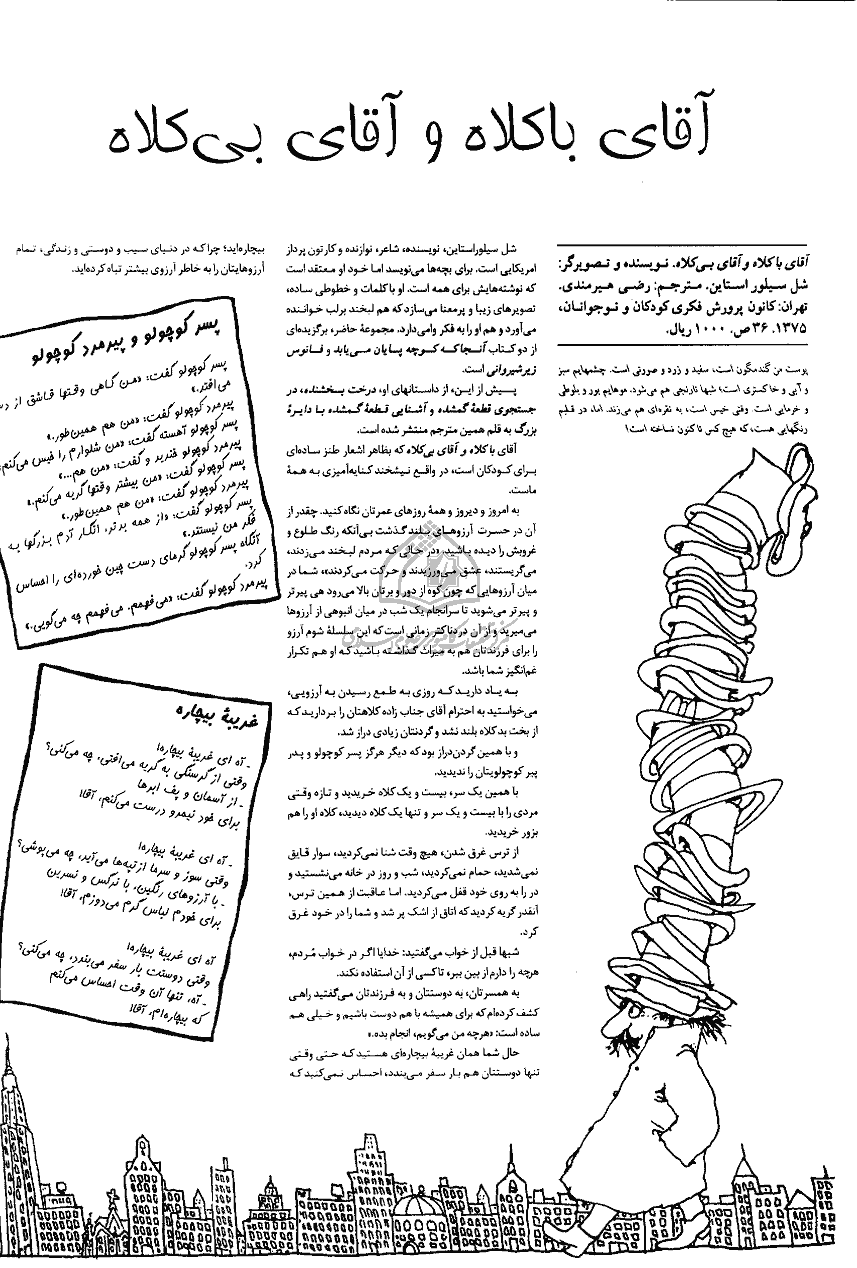 آقای باکلاه و آقای بی‌کلاه
آقای باکلاه و آقای بی‌کلاه. نویسنده و تصویرگر:
شل سیلور استاین. مترجم: رضی هیرمندی.
تهران: کانون پرورش فکری کودکان و نوجوانان،
۱۳۷۵. ۳۶ ص. ۱۰۰۰ ریال.
پوست من گندمگون است، سفید و زرد و صورتی است. چشمهایم سبز
و آبی و خاکستری است؛ شبها نارنجی هم می‌شود. موهایم بور و بلوطی
و خرمایی است. وقتی خیس است، به نقره‌ای هم می‌زند. اما، در قلبم
رنگهایی هست، که هیچ کس تاکنون نساخته است!
شل سیلوراستاین، نویسنده، شاعر، نوازنده و کارتون پرداز
امریکایی است. برای بچه‌ها می‌نویسد اما خود او معتقد است
که نوشته‌هایش برای همه است. او با کلمات و خطوطی ساده،
تصویرهای زیبا و پرمعنا می‌سازد که هم لبخند برلب خواننده
می‌آورد و هم او را به فکر وامی‌دارد. مجموعهٔ حاضر، برگزیده‌ای
از دو کتاب آنجا که کوچه پسایان می‌یابد و فانوس
زیرشیروانی است.
پیش از این، از داستانهای او، درخت بخشنده، در
جستجوی قطعهٔ گمشده و آشنایی قطعهٔ گمشده با دایرهٔ
بزرگ به قلم همین مترجم منتشر شده است.
آقای باکلاه و آقای بی‌کلاه که بظاهر اشعار طنز ساده‌ای
برای کودکان است، در واقع نیشخند کنایه‌آمیزی به همهٔ
ماست.
به امروز و دیروز و همهٔ روزهای عمرتان نگاه کنید. چقدر از
آن در حسرت آرزوهای بلند گذشت بی‌آنکه رنگ طلوع و
غروبش را دیده باشید. «در حالی که مردم لبخند می‌زدند،
می‌گریستند، عشق می‌ورزیدند و حرکت می‌کردند» شما در
میان آرزوهایی که چون کوه از دور و برتان بالا می‌رود هی پیرتر
و پیرتر می‌شوید تا سرانجام یک شب در میان انبوهی از آرزوها
می‌میرید و از آن دردناکتر زمانی است که این سلسلهٔ شوم آرزو
را برای فرزندتان هم به میراث گذاشته باشید که او هم تکرار
غم‌انگیز شما باشد.
به یاد دارید که روزی به طمع رسیدن به آرزویی،
می‌خواستید به احترام آقای جناب زاده کلاهتان را بردارید که
از بخت بد کلاه بلند نشد و گردنتان زیادی دراز شد.
و با همین گردن‌دراز بود که دیگر هرگز پسر کوچولو و پدر
پیر کوچولویتان را ندیدید.
با همین یک سر، بیست و یک کلاه خریدید و تازه وقتی
مردی را با بیست و یک سر و تنها یک کلاه دیدید، کلاه او را هم
بزور خریدید.
از ترس غرق شدن، هیچ وقت شنا نمی‌کردید، سوار قایق
نمی‌شدید، حمام نمی‌کردید، شب و روز در خانه می‌نشستید و
در را به روی خود قفل می‌کردید. اما عاقبت از همین ترس،
آنقدر گریه کردید که اتاق از اشک پر شد و شما را در خود غرق
کرد.
شبها قبل از خواب می‌گفتید: خدایا اگر در خواب مُردم،
هرچه را دارم از بین ببر، تاکسی از آن استفاده نکند.
به همسرتان، به دوستتان و به فرزندتان می‌گفتید راهی
کشف کرده‌ام که برای همیشه با هم دوست باشیم و خیلی هم
ساده است: «هرچه من می‌گویم، انجام بده.»
حال شما همان غریبهٔ بیچاره‌ای هستید که حتی وقتی
تنها دوستتان هم بار سفر می‌بندد، احساس نمی‌کنید که
بیچاره‌اید؛ چرا که در دنیای سیب و دوستی و زندگی، تمام
آرزوهایتان را به خاطر آرزوی بیشتر تباه کرده‌اید.
پسر کوچولو و پیرمرد کوچولو
پسر کوچولو گفت: «من گاهی وقتها قاشق از
می‌افتد.»
پیرمرد کوچولو گفت: «من هم همین‌طور.»
پسر کوچولو آهسته گفت: «من شلوارم را خیس می‌کنم
پیرمرد کوچولو خندید و گفت: «من هم...»
پسر کوچولو گفت: «من بیشتر وقتها گریه می‌کنم.»
پیرمرد کوچولو گفت: «من هم همین‌طور.»
پسر کوچولو گفت: «از همه بدتر، انگار آدم بزرگها به
فکر من نیستند.»
آنگاه پسر کوچولو گرمای دست چین خورده‌ای را احساس
کرد.
پیرمرد کوچولو گفت: «می‌فهمم. می‌فهمم چه می‌گویی.»
غریبهٔ بیچاره
- آه ای غریبهٔ بیچاره!
وقتی از گرسنگی به گریه می‌افتی، چه می‌کنی؟
- از آسمان و پف ابرها
برای خود نیمرو درست می‌کنم، آقا!
- آه ای غریبهٔ بیچاره!
وقتی سوز و سرما از تپه‌ها می‌آید، چه می‌پوشی؟
- با آرزوهای رنگین، با نرگس و نسرین
برای خودم لباس گرم می‌دوزم، آقا!
آه ای غریبهٔ بیچاره!
وقتی دوستت بار سفر می‌بندد، چه می‌کنی؟
- آه، تنها آن وقت احساس می‌کنم
که بیچاره‌ام، آقا!